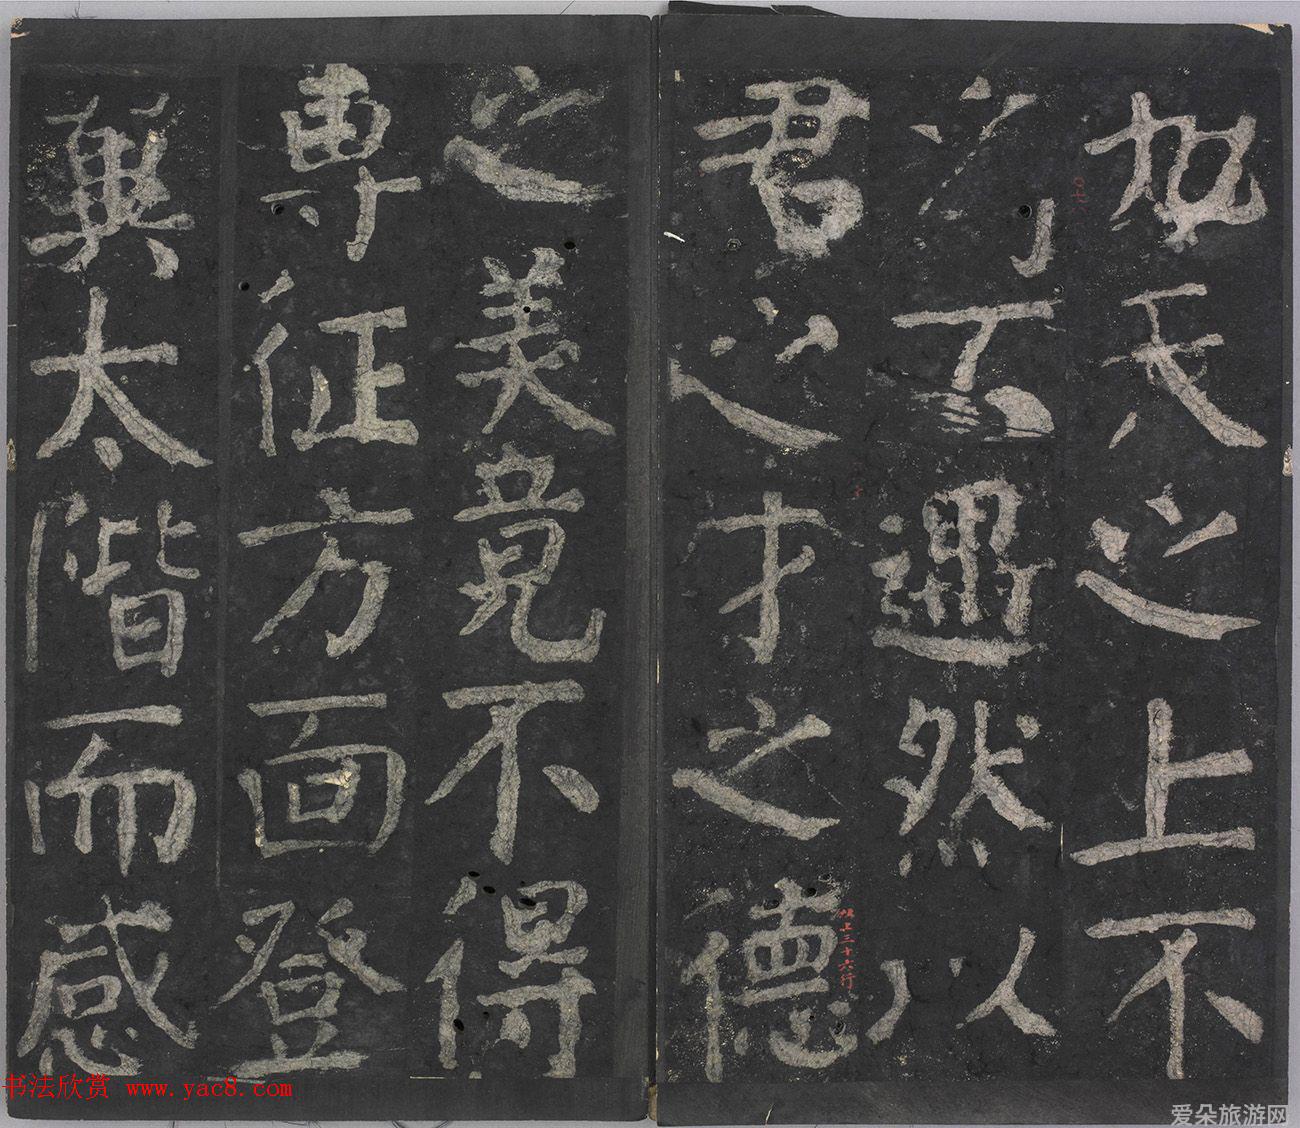 之上不
不遇然以
君之才之德
之美竟不得
專征方面登
翼太階而感
帖上三十六行
书法欣赏 www.yac8.com
爱朵旅游网